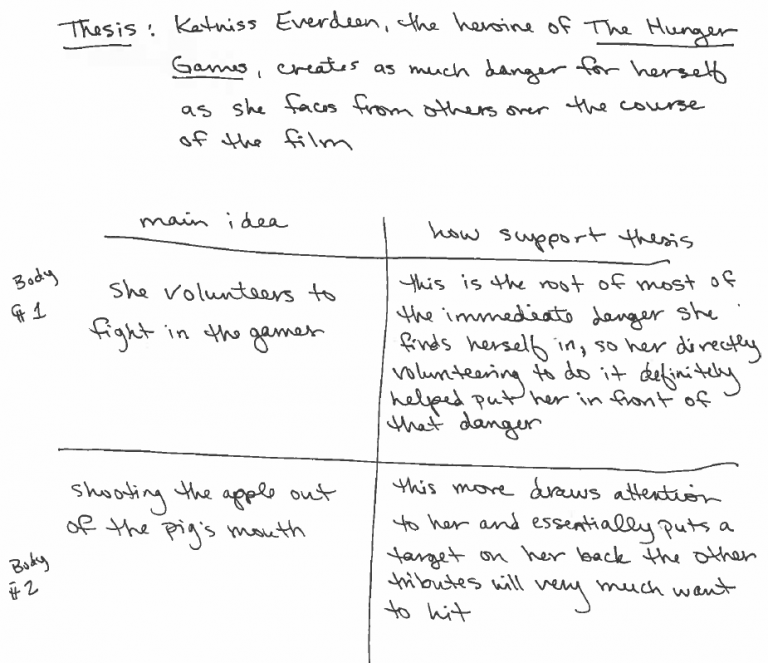 Thesis: Katniss Everdeen, the heroine of The Hunger
Games, creates as much danger for herself
as she faces from others over the course
of the film
main idea
how support thesis
Body
#1
she volunteers to
fight in the games
this is the root of most of
the immediate danger she
finds herself in, so her directly
volunteering to do it definitely
helped put her in front of
that danger
Body
#2
shooting the apple out
of the pig's mouth
this more draws attention
to her and essentially puts a
target on her back the other
tributes will very much want
to hit